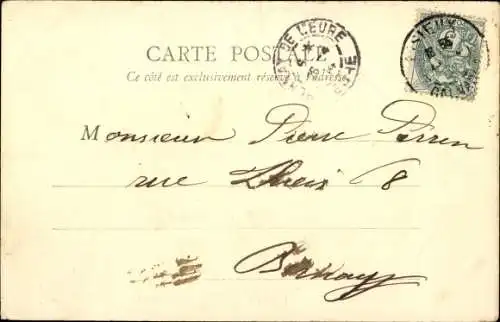 CARTE POSTALE
Ce côté est exclusivement réservé à l'adresse
DE L'EURE
LISIEUX
CALVADOS
Monsieur Pierre Perren
rue Thiers 8
Bernay